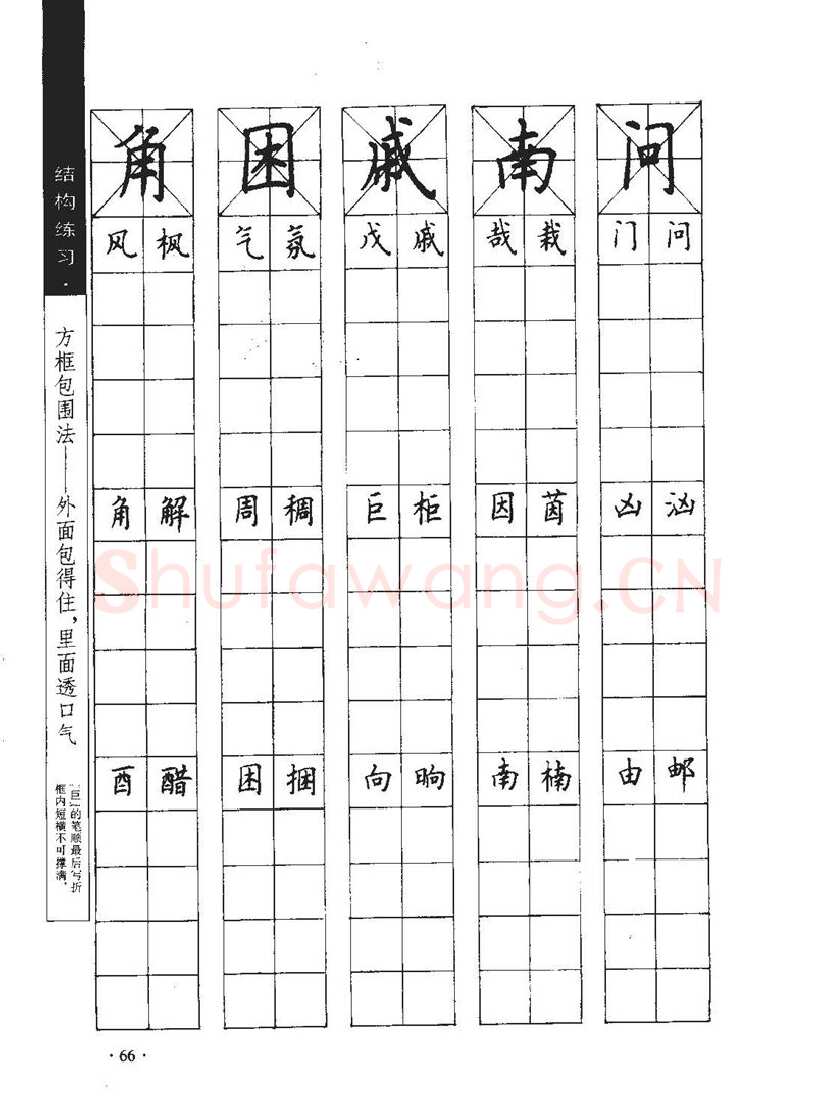 结构练习·
方框包围法——外面包得住，里面透口气
“巨”的笔顺最后写折
框内短横不可撑满。
角 困 戚 南 问
风 枫 气 氛 戊 戚 哉 栽 门 问
角 解 周 稠 巨 柜 因 茵 凶 汹
酉 醋 困 捆 向 晌 南 楠 由 邮
Shufawang.CN
·66·